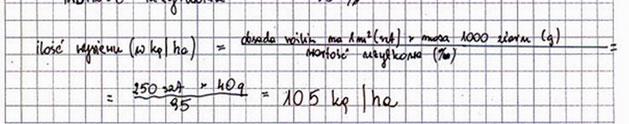 ilość wysiewu (w kg/ha) = obsada roślin na 1m² (szt) × masa 1000 ziarn (g) / wartość użytkowa (%) =
= 250 szt × 40g / 95 = 105 kg/ha